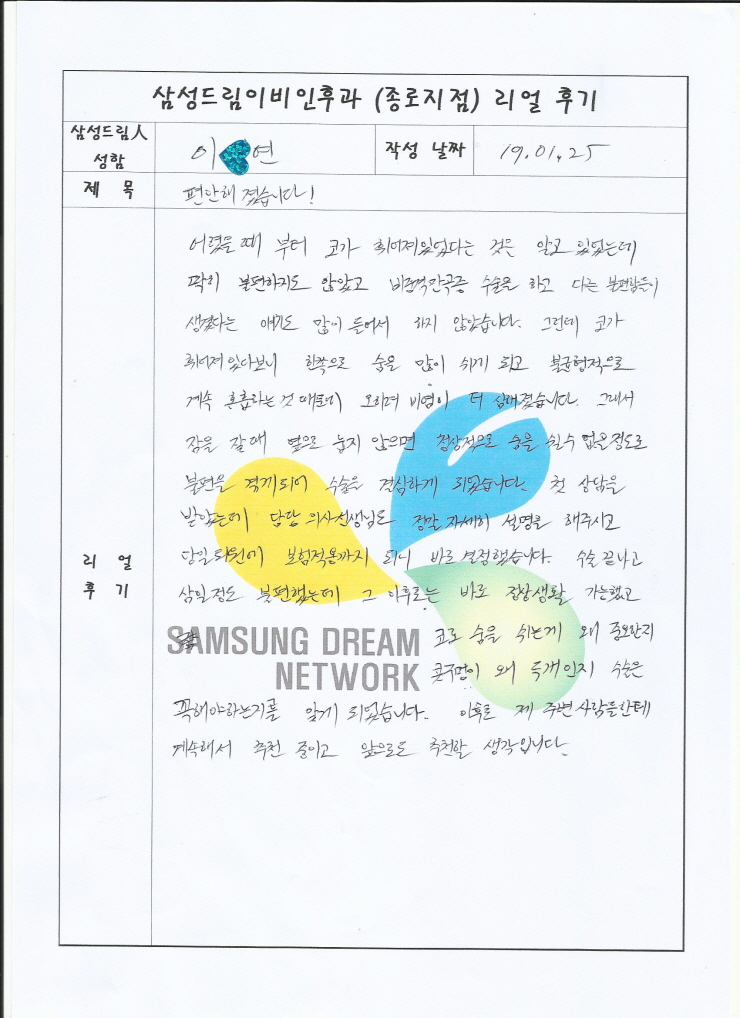 삼성드림이비인후과 (종로지점) 리얼 후기
삼성드림人
성함
이 연
작성 날짜
19.01.25
제 목
편안해 졌습니다!
리 얼
후 기
어렸을 때 부터 코가 휘어져있었다는 것은 알고 있었는데
딱히 불편하지도 않았고 비중격만곡증 수술을 하고 다른 불편함들이
생겼다는 얘기도 많이 들어서 하지 않았습니다. 그런데 코가
휘어져 있다보니 한쪽으로 숨을 많이 쉬기 되고 불균형적으로
계속 호흡하는 것 때문에 오히려 비염이 더 심해졌습니다. 그래서
잠을 잘 때 옆으로 눕지 않으면 정상적으로 숨을 쉴수 없을정도로
불편을 겪게되어 수술을 결심하게 되었습니다. 첫 상담을
받았는데 담당 의사선생님도 정말 자세히 설명을 해주시고
당일퇴원에 보험적용까지 되니 바로 결정했습니다. 수술 끝나고
삼일정도 불편했는데 그 이후로는 바로 일상생활 가능했고
코로 숨을 쉬는게 왜 중요한지
SAMSUNG DREAM
NETWORK
콧구멍이 왜 두개인지 수술은
꼭해야하는지를 알게 되었습니다. 이후로 제 주변사람들한테
계속해서 추천 중이고 앞으로도 추천할 생각입니다.